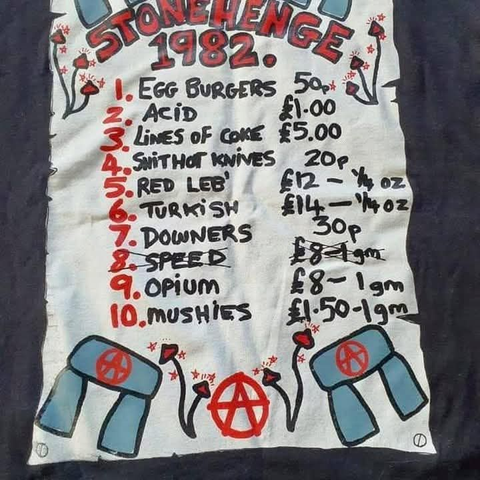 STONEHENGE
1982.
1. EGG BURGERS 50p
2. ACID £1.00
3. LINES OF COKE £5.00
4. SHITHOT KNIVES 20p
5. RED LEB' £12 - 1/4 OZ
6. TURKISH £14 - 1/4 OZ
7. DOWNERS 30p
8. SPEED £8-1gm
9. OPIUM £8-1gm
10. MUSHIES £1.50-1gm